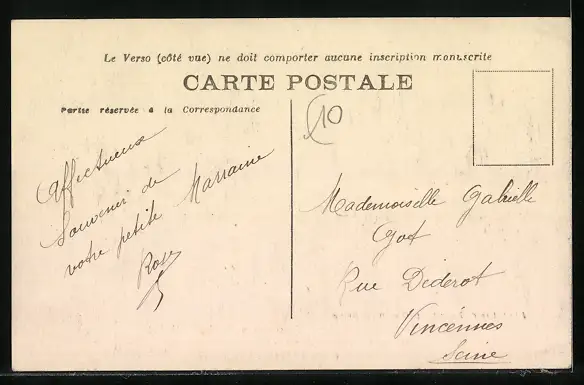 Le Verso (côté vue) ne doit comporter aucune inscription manuscrite
CARTE POSTALE
Partie réservée à la Correspondance
10
Affectueux
Souvenir de
votre petite Marraine
Rose
Mademoiselle Gabrielle
Got
Rue Diderot
Vincennes
Seine